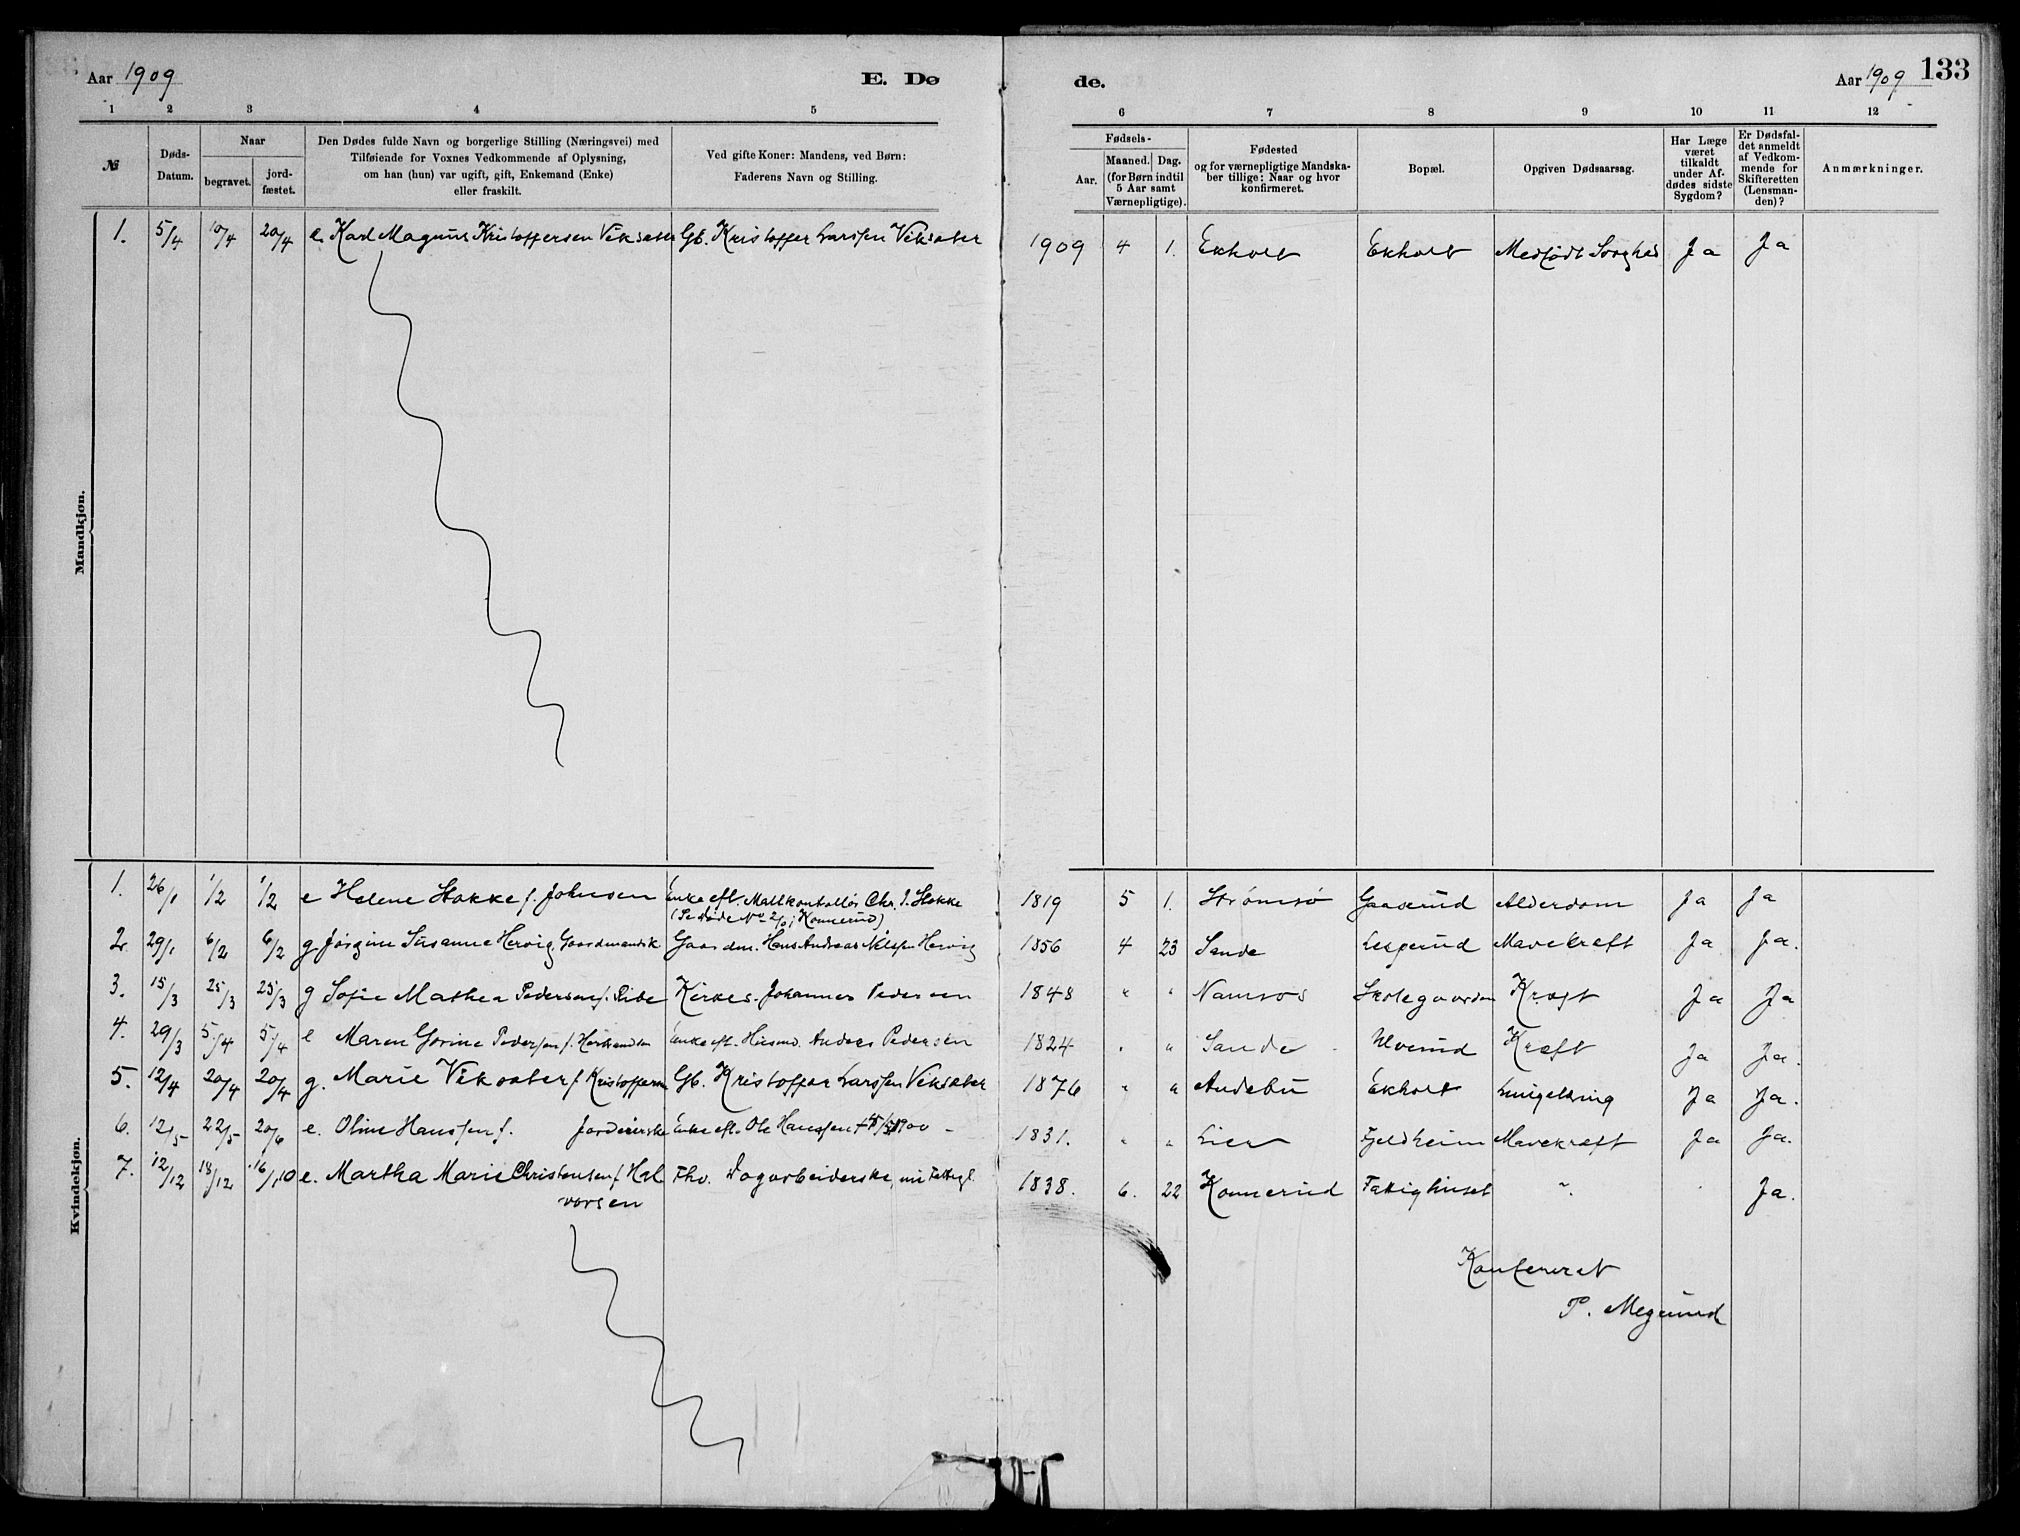 Aar 1909 E. Dø
1 2 3 4 5
№ Døds-Datum. Naar begravet. jord-fæstet. Den Dødes fulde Navn og borgerlige Stilling (Næringsvei) med Tilføiende for Voxnes Vedkommende af Oplysning, om han (hun) var ugift, gift, Enkemand (Enke) eller fraskilt. Ved gifte Koner: Mandens, ved Børn: Faderens Navn og Stilling.
de. Aar 1909 133
6 7 8 9 10 11 12
Fødsels- Aar. Maaned. Dag. (for Børn indtil 5 Aar samt Værnepligtige). Fødested og for værnepligtige Mandska-ber tillige: Naar og hvor konfirmeret. Bopæl. Opgiven Dødsaarsag. Har Læge været tilkaldt under Af-dødes sidste Sygdom? Er Dødsfal-det anmeldt af Vedkom-mende for Skifteretten (Lensman-den)? Anmærkninger.
Mandkjøn.
1. 5/4 10/4 20/4 e. Karl Magnus Kristoffersen Viksæter Gb. Kristoffer Larssen Viksæter 1909 4 1. Ekholt Ekholt Medfødt Svaghed Ja Ja
Kvindekjøn.
1. 26/1 1/2 1/2 e Helene Stokke f. Johnsen Enke eft. Maltkontrollør Chr. J. Stokke 1819 5 1. Strømsø Gaaserud Alderdom Ja Ja
(Se døde No 2/01 Konnerud)
2. 29/1 6/2 6/2 g Jørgine Susanne Hervig Gaardmandsk Gaardm. Hans Andreas Nilsen Hervig 1856 4 23 Sande Mavekræft Ja Ja.
3. 15/3 25/3 25/3 g Sofie Mathea Pedersen f. Kirkes. Johannes Pedersen 1848 " " Namsos Skolegaarden Kræft Ja Ja
4. 29/3 5/4 5/4 e Maren Gorine Pedersen f. Enke eft. Husmd. Anders Pedersen 1824 " " Sande Ulverud Kræft Ja Ja.
5. 12/4 20/4 20/4 g. Marie Viksæter f. Kristoffersen Gb. Kristoffer Larssen Viksæter 1876 " " Andebu Ekholt Ja Ja.
6. 12/5 22/5 20/6 e. Oline Hanssen f. Jordeierske Enke eft. Ole Hanssen 1900 1831. " " Lier Fjeldheim Mavekræft Ja Ja.
7. 12/12 18/12 16/1 10 e. Martha Marie Christensen f. Hal Fhv. Dagarbeiderske, nu Fattigl. 1838. 6. 22 Konnerud Fattighuset " Ja.
vorsen
Konfereret
P. Megrund